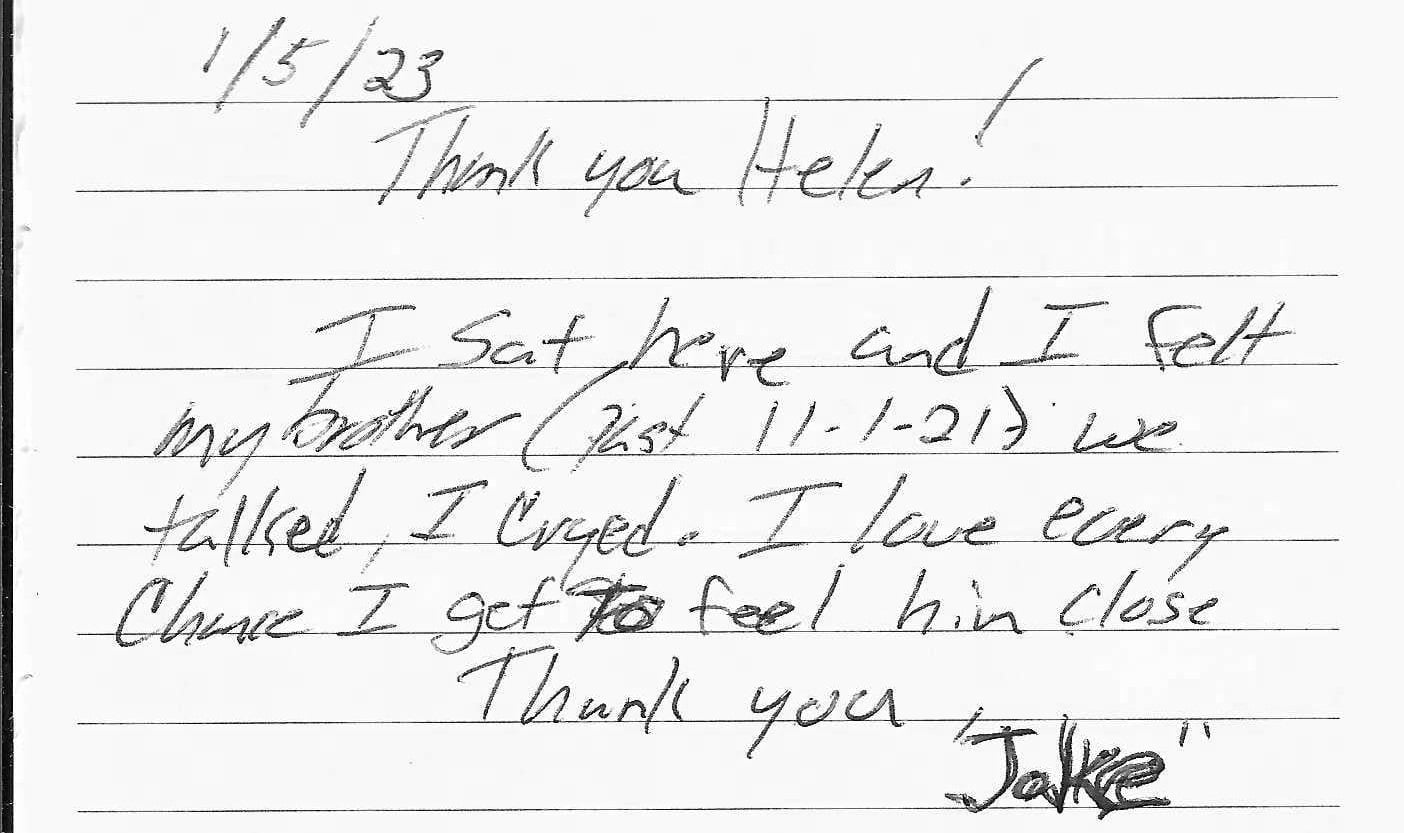 1/5/23
Thank you Helen!
I Sat here and I felt
my brother (past 11-1-21) we
talked, I Cryed. I love every
Chance I get to feel him close
Thank you
"Jakke"